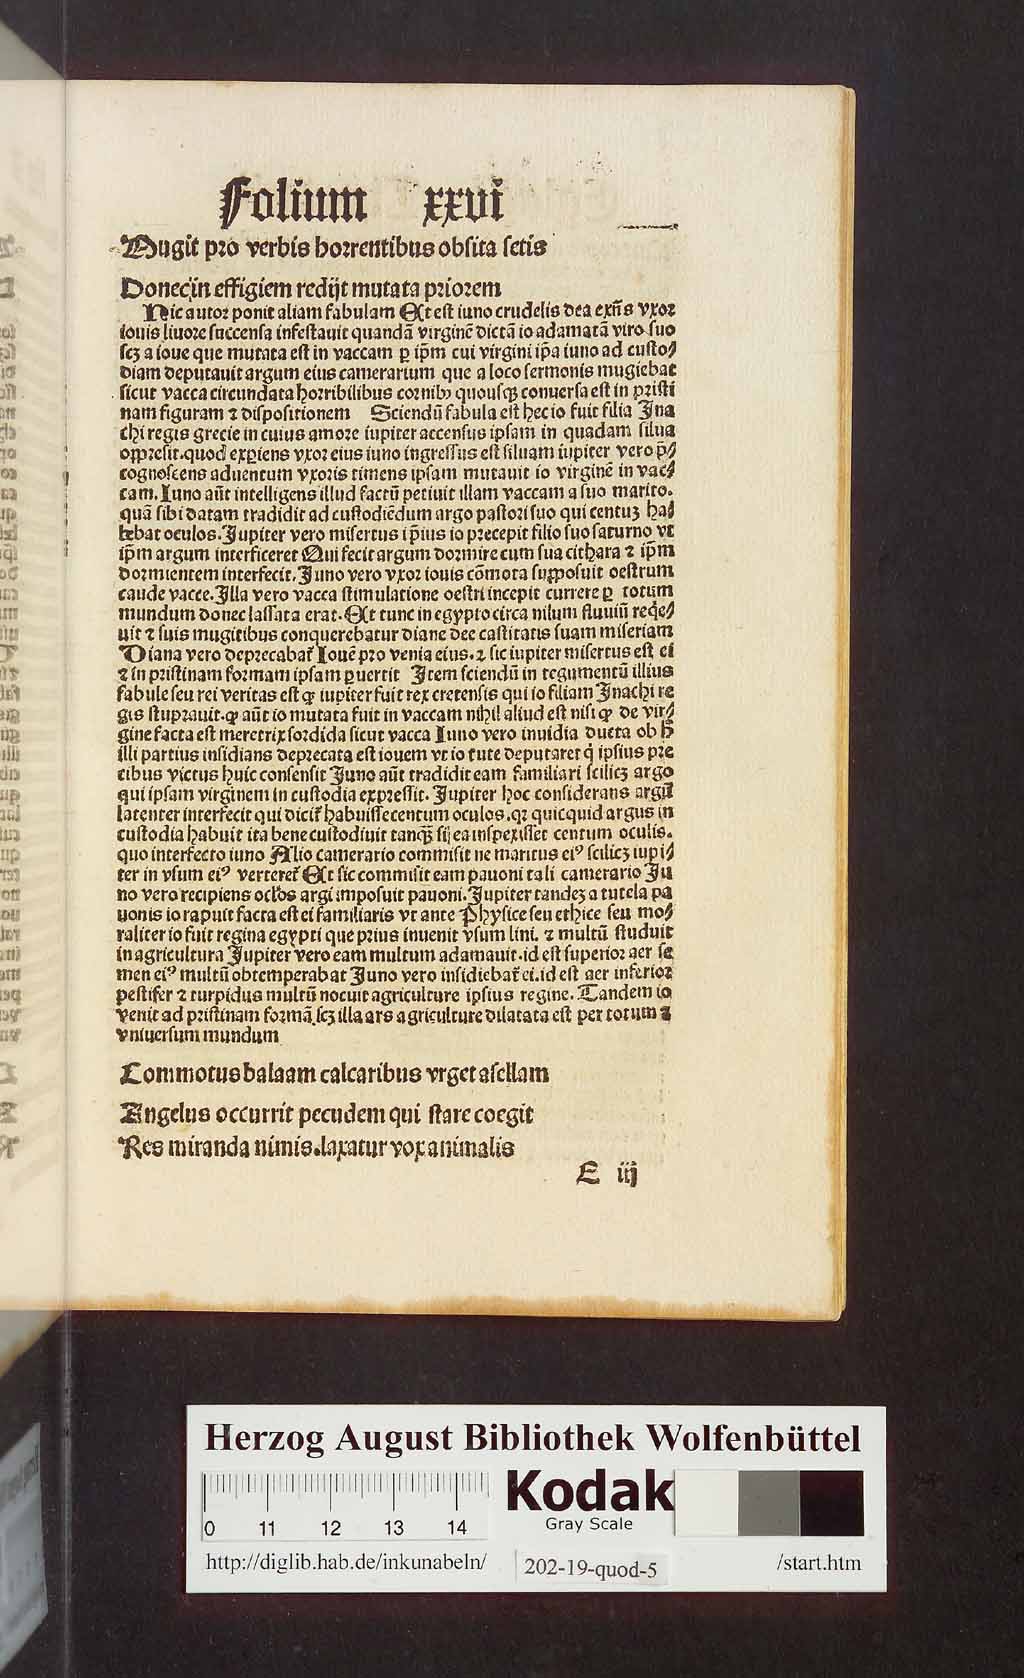 Folium xxvi
Mugit pro verbis horrentibus obsita setis
Donec in effigiem redijt mutata priorem
Hic autor ponit aliam fabulam Et est iuno crudelis dea exñs vxor
iouis liuore succensa infestauit quandã virginẽ dictã io adamatã viro suo
scz a ioue que mutata est in vaccam ꝑ ip̃m cui virgini ip̃a iuno ad custo⸗
diam deputauit argum eius camerarium que a loco sermonis mugiebat
sicut vacca circundata horribilibus cornibꝰ quousqꝫ conuersa est in pristi
nam figuram ⁊ dispositionem Sciendũ fabula est hec io fuit filia Ina
chi regis grecie in cuius amore iupiter accensus ipsam in quadam silua
oppresit. quod exꝑiens vxor eius iuno ingressus est siluam iupiter vero p̃⸗
cognoscens aduentum vxoris timens ipsam mutauit io virginẽ in vac⸗
cam. Iuno aũt intelligens illud factũ petiuit illam vaccam a suo marito.
quã sibi datam tradidit ad custodiẽdum argo pastori suo qui centuꝫ ha⸗
bebat oculos. Jupiter vero misertus ip̃ius io precepit filio suo saturno vt
ip̃m argum interficeret Qui fecit argum dormire cum sua cithara ⁊ ip̃m
dormientem interfecit. Juno vero vxor iouis cõmota supposuit oestrum
caude vacce. Illa vero vacca stimulatione oestri incepit currere ꝑ totum
mundum donec lassata erat. Et tunc in egypto circa nilum fluuiũ req̃e⸗
uit ⁊ suis mugitibus conquerebatur diane dee castitatis suam miseriam
Diana vero deprecabat̃ Iouẽ pro venia eius. ⁊ sic iupiter misertus est ei
⁊ in pristinam formam ipsam ꝑuertit Item sciendũ in tegumentũ illius
fabule seu rei veritas est ꝙ iupiter fuit rex cretensis qui io filiam Inachi re
gis stuprauit. ꝙ aũt io mutata fuit in vaccam nihil aliud est nisi ꝙ de vir⸗
gine facta est meretrix sordida sicut vacca Iuno vero inuidia ducta ob h̃
illi partius insidians deprecata est iouem vt io tute deputaret q̃ ipsius pre
cibus victus huic consensit Juno aũt tradidit eam familiari scilicꝫ argo
qui ipsam virginem in custodia expressit. Jupiter hoc considerans argũ
latenter interfecit qui dicit̃ habuisse centum oculos. qꝛ quicquid argus in
custodia habuit ita bene custodiuit tanqꝫ si ea inspexisset centum oculis.
quo interfecto iuno Alio camerario commisit ne maritus eiꝰ scilicꝫ iupi⸗
ter in vsum eiꝰ verteret̃ Et sic commisit eam pauoni tali camerario Ju
no vero recipiens oc̃los argi imposuit pauoni. Jupiter tandeꝫ a tutela pa
uonis io rapuit facta est ei familiaris vt ante Physice seu ethice seu mo⸗
raliter io fuit regina egypti que prius inuenit vsum lini. ⁊ multũ studuit
in agricultura Jupiter vero eam multum adamauit. id est superior aer se
men eiꝰ multũ obtemperabat Juno vero insidiebat̃ ei. id est aer inferior
pestifer ⁊ turpidus multũ nocuit agriculture ipsius regine. Tandem io
venit ad pristinam formã. scꝫ illa ars agriculture dilatata est per totum ⁊
vniuersum mundum
Commotus balaam calcaribus vrget asellam
Angelus occurrit pecudem qui stare coegit
Res miranda nimis. laxatur vox animalis
E iij
Herzog August Bibliothek Wolfenbüttel
0 11 12 13 14
Kodak
Gray Scale
http://diglib.hab.de/inkunabeln/ 202-19-quod-5 /start.htm